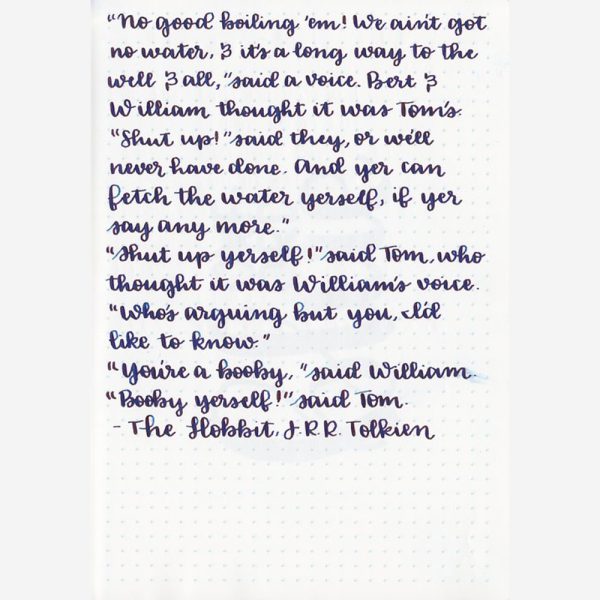 "No good boiling 'em! We ain't got
no water, & it's a long way to the
well & all," said a voice. Bert &
William thought it was Tom's.
"Shut up!" said they, or we'll
never have done. And yer can
fetch the water yerself, if yer
say any more."
"Shut up yerself!" said Tom, who
thought it was William's voice.
"Who's arguing but you, I'd
like to know."
"You're a booby," said William.
"Booby yerself!" said Tom.
- The Hobbit, J.R.R. Tolkien